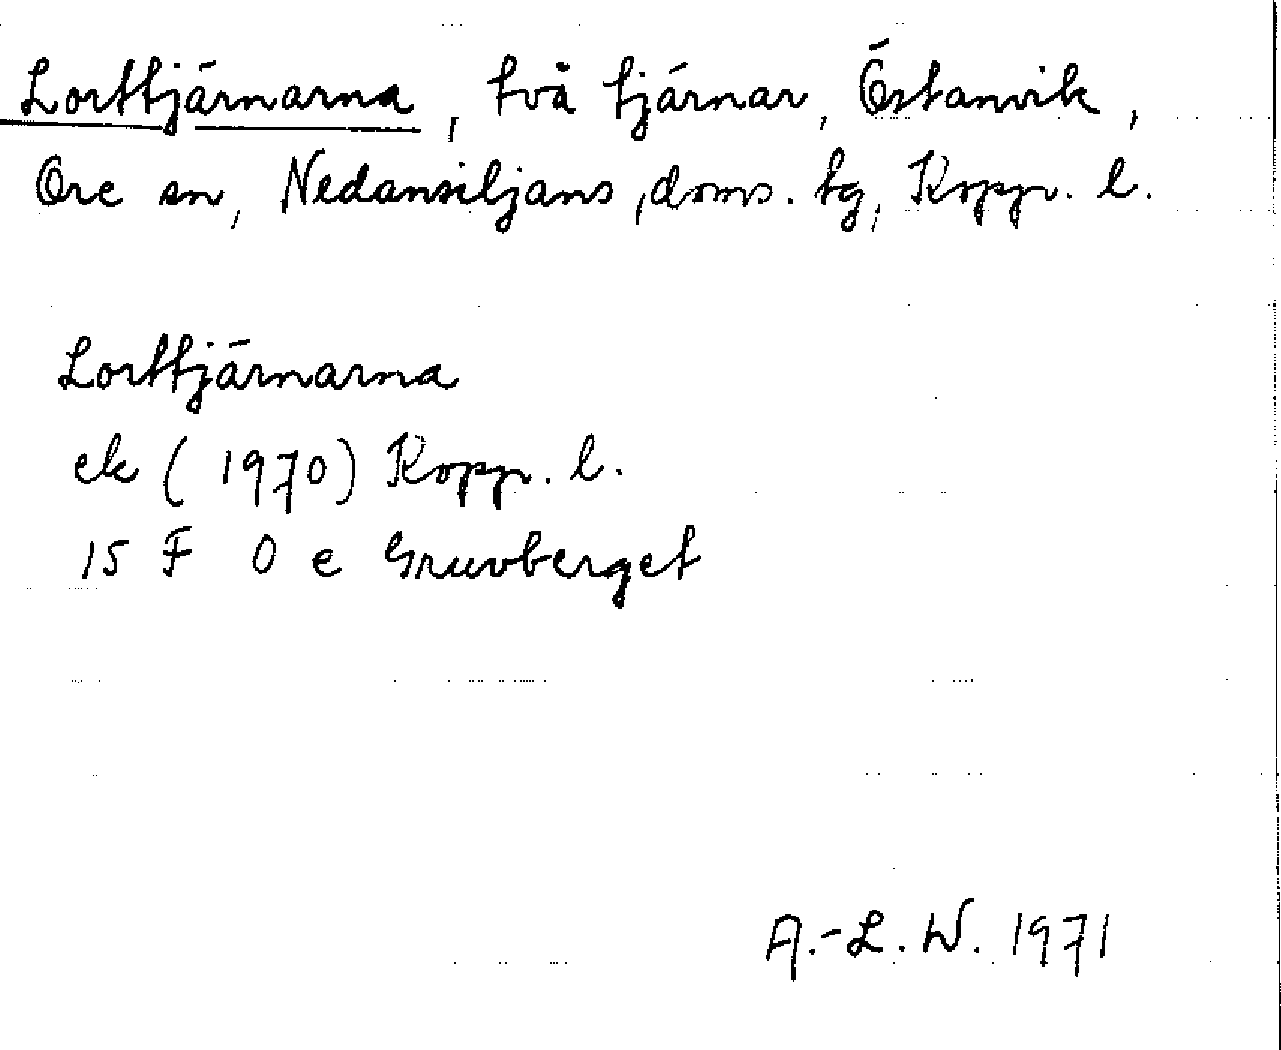 Lorttjärnarna, två tjärnar, Östanvik,
Ore sn, Nedansiljans, doms. tg, Kopp. l.
Lorttjärnarna
ek (1970) Kopp. l.
15 F 0 e Gruvberget
A.-L. W. 1971